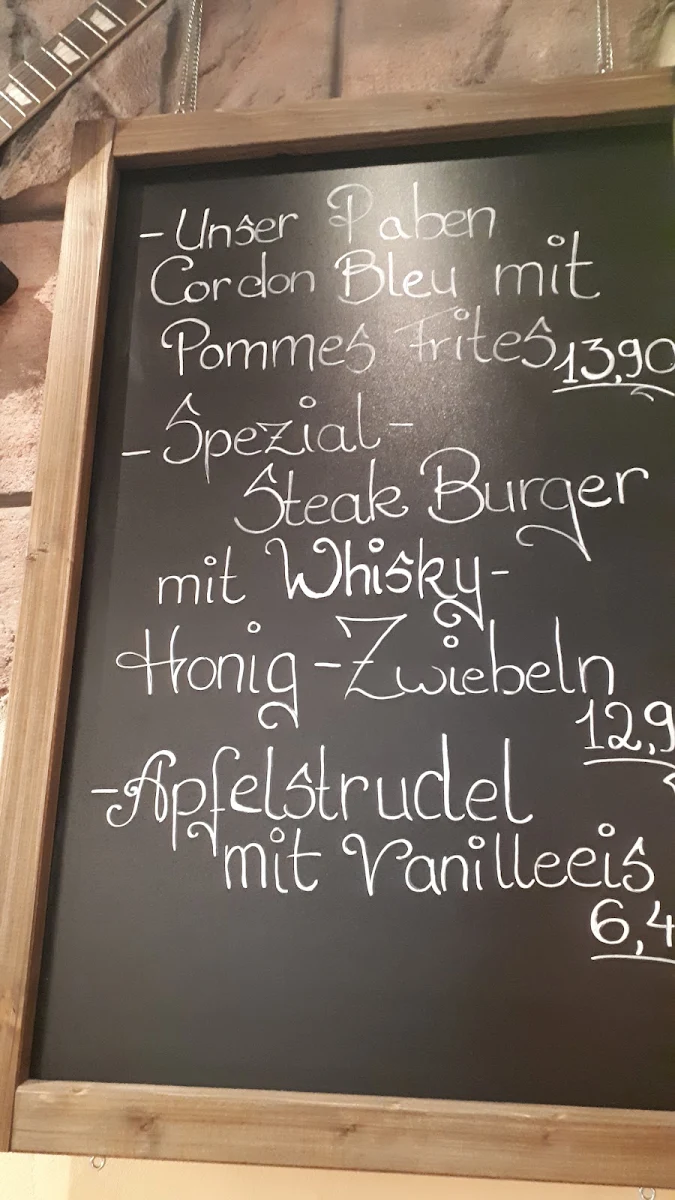 - Unser Paben
Cordon Bleu mit
Pommes Frites 13,90
- Spezial-
Steak Burger
mit Whisky-
Honig-Zwiebeln
12,9
- Apfelstrudel
mit Vanilleeis
6,4